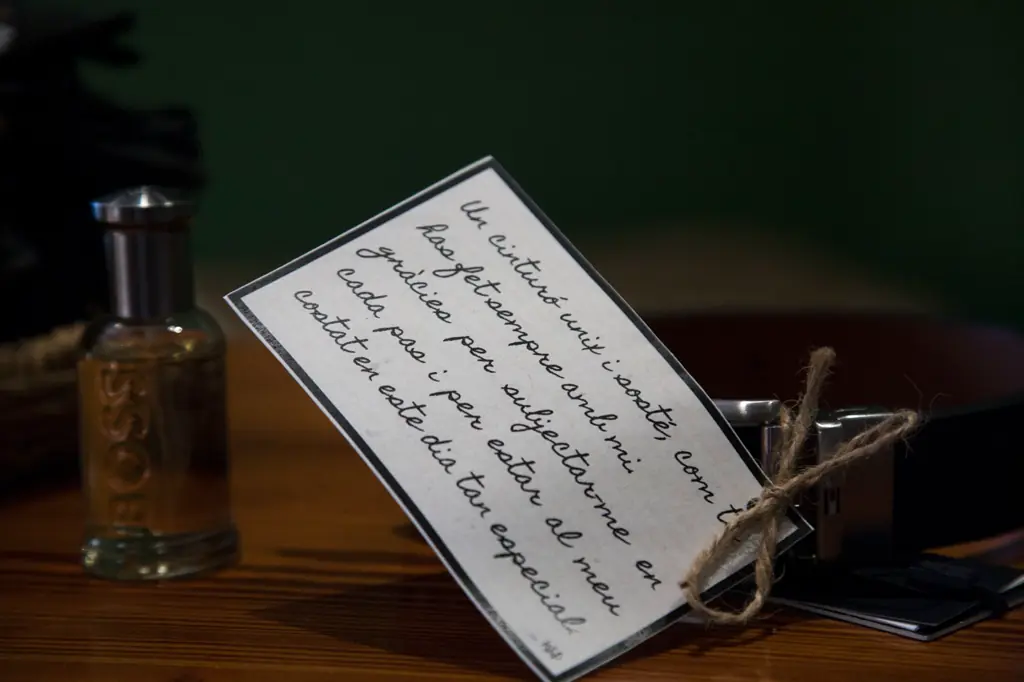 Un cinturó unix i sosté, com
has fet sempre amb mi.
gràcies per subjectar-me en
cada pas i per estar al meu
costat en este dia tan especial.
BOSS